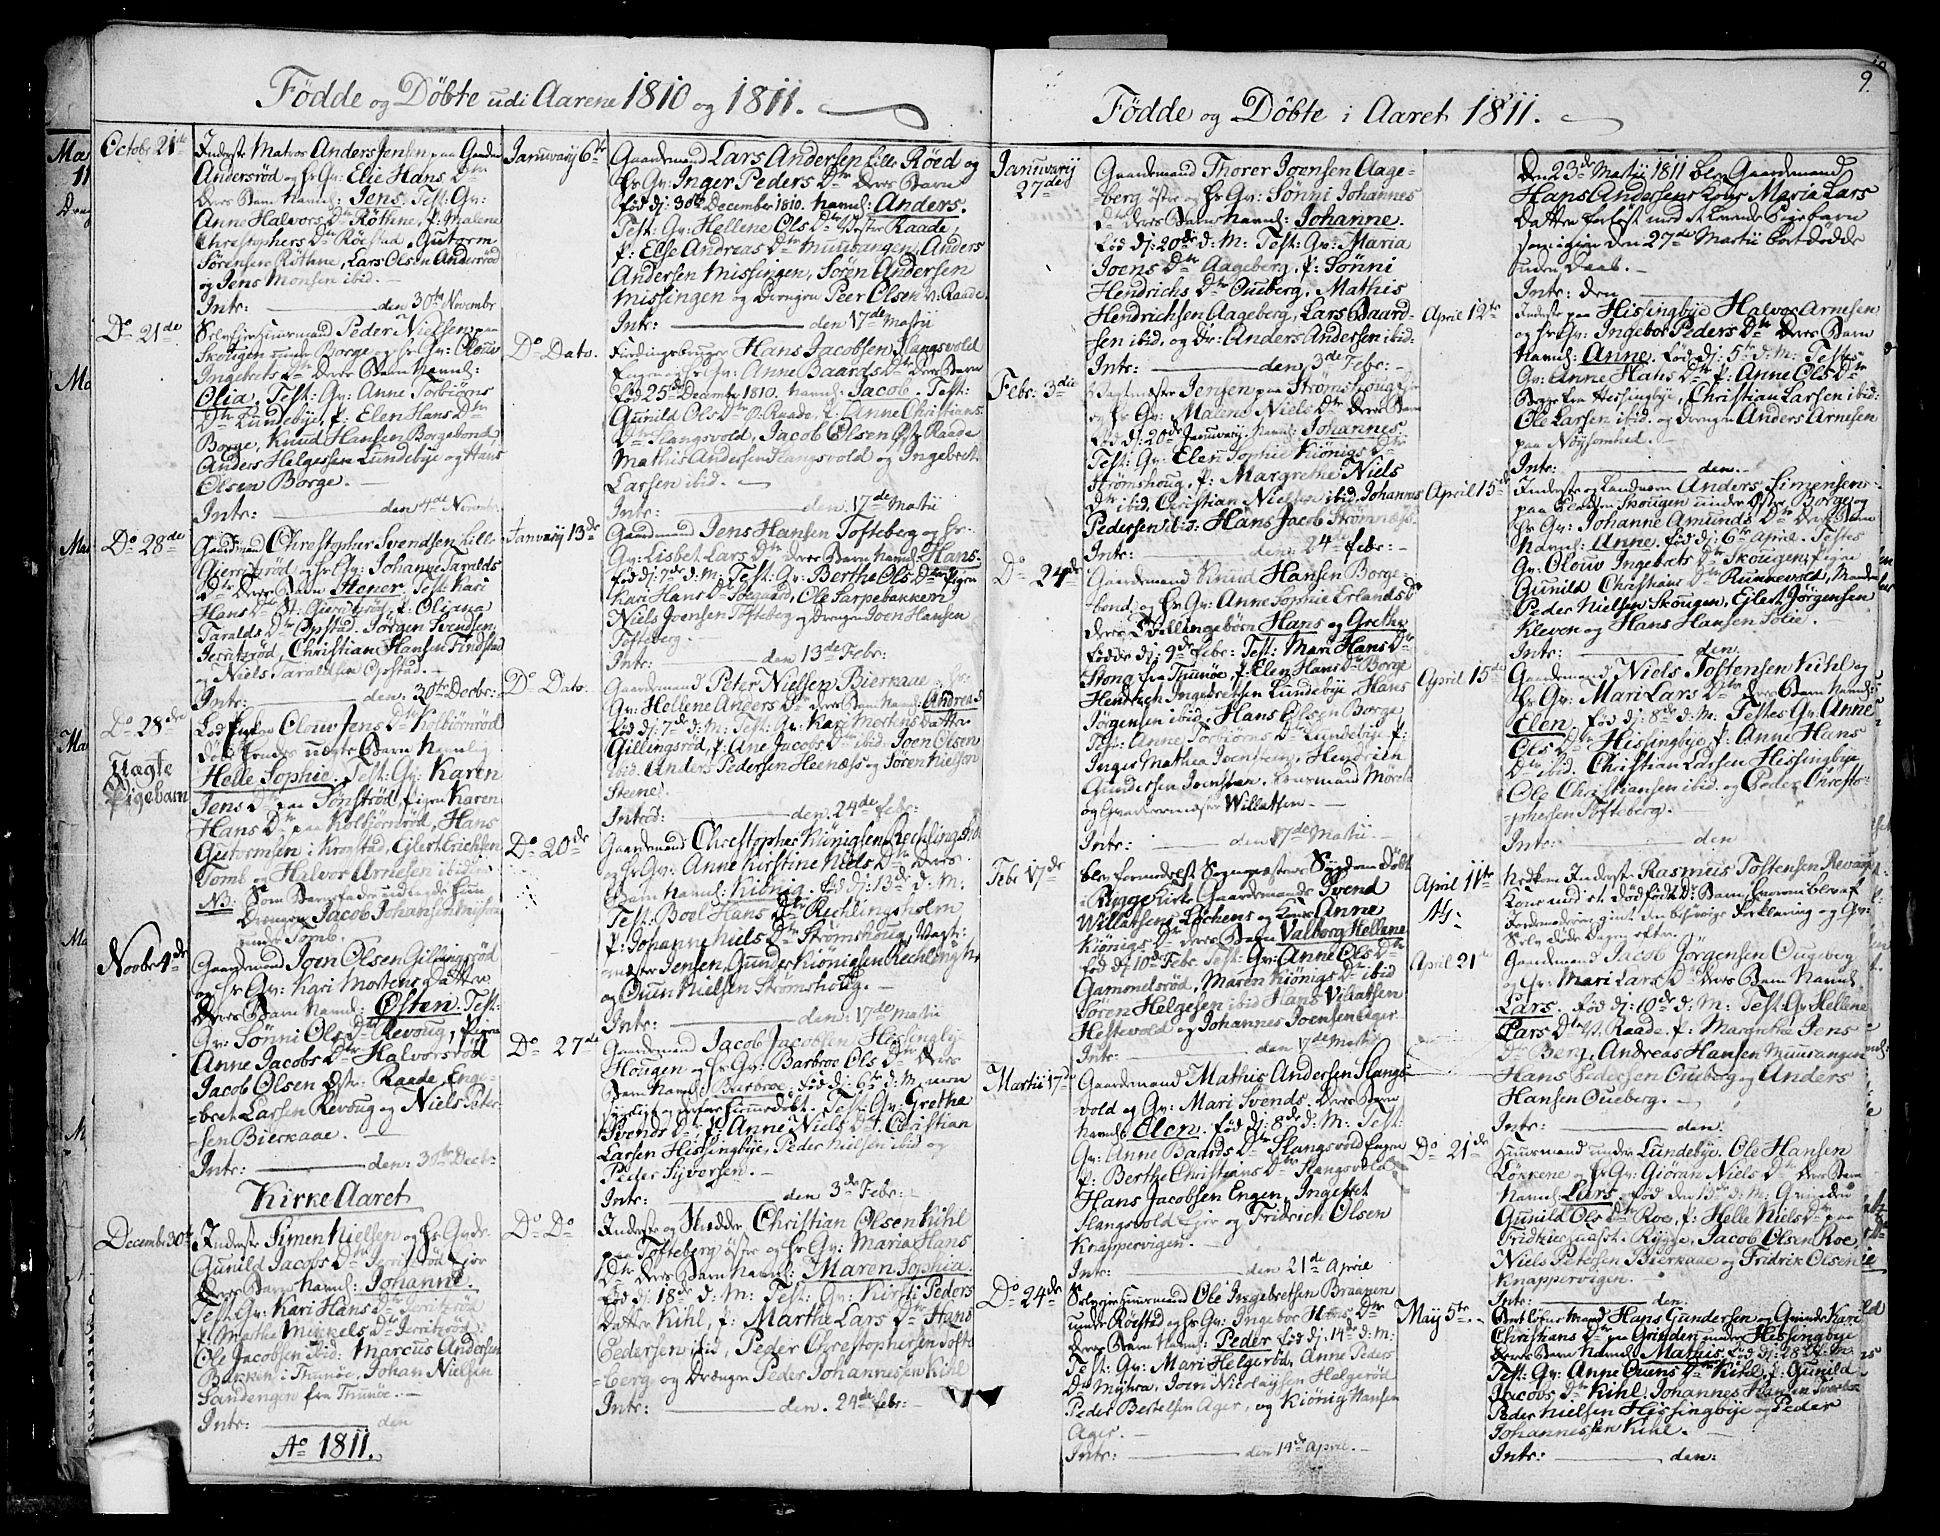 Födde og Döbte udi Aarene 1810 og 1811.
Octobr 21de
Inderste Matros Anders Jensen paa
Andersrød og Hr Qv: Elie Hans Dtr
deres Barn Namnl: Jens. Test: Qv:
Anne Halvors Dtr Röthne, P: Malene
Christophers Dtr Röestad, Gutorm
Sörensen Röthne, Lars Olsen Andersröd
og Jens Monsen ibid. —
Intr: — den 30te Novembr
Do 21de
Selveyer Huusmand Peder Nielsen paa
Skougen under Borge og Hr Qv: Olouv
Ingebrets Dtr deres Barn Namnl:
Olia. Test: Qv: Anne Torbiörns
Dtr Lundebye, P: Elen Hans Dtr
Borge, Knud Hansen Borgebond
Anders Helgesen Lundebye og Hans
Olsen Borge. —
Intr: — den 4de Novembr
Do 28de
Gaardmand Christopher Svendsen Lille
Gierritzröd og Hr Qv: Johanne Taralds
Dtr deres Barn Test: Kari
Hans Dtr St. Gierritzröd, P: Oliana
Taralds Dtr Opstad. Jörgen Svendsen
Jerritzröd, Christian Hansen Findstad
og Niels Taraldsen Opstad —
Intr: — den 30te Decbr:
Do 28de
Uægte
Pigebarn
Lod Enken Olouv Jens Dtr Kolbiörnröd
döbe hendes uægte Barn Namnlig
Helle Sophie. Test: Qv: Karen
Jens Dtr paa Sönsröd, Pigen Karen
Hans Dtr paa Kolbiörnröd, Hans
Gutormsen i Krogstad, Eilert Erichsen
Tomb og Halvor Arnesen ibidem
NB: Som Barnefader udlagde hun
Drengen Jacob Johansen
under Tomb.
Novbr 4de
Gaardmand Joen Olsen Gillingsröd
og Hr Qv: Kari Mortens datter
deres Barn Namnl: Östen. Test:
Qv: Sönni Ols Dtr Revoug, Pigen
Anne Jacobs Dtr Halvorsröd
Jacob Olsen Östr: Raade, Enge-
-bret Larsen Revoug og Niels Peder-
-sen Bierkaae. —
Intr: — den: 30te Decbr
Kirke Aaret
December 30te
Inderste Simen Nielsen og Hr Qvde
Gunild Jacobs Dtr Jerritzröd
deres Barn Namnl: Johanne.
Test: Qv: Kari Hans Dtr Jerritzröd
P: Marthe Mickels Dtr Jerritzröd
Ole Jacobsen ibid: Marcus Andersen
Bakken i Thunöe, Johan Nielsen
Sandengen fra Thunöe. —
Intr: — den
Ao 1811.
Januvarij 6te
Gaardmand Lars Andersen Lille Röed og
Hr Qv: Inger Peders Dtr deres Barn
fød dj: 30te December 1810. Namnl: Anders.
Test: Qv: Hellene Ols Dtr Vester Raade,
P: Else Andreas Dtr Muurangen, Anders
Andersen Missingen, Sören Andersen
Missingen og Drengen Peer Olsen V: Raade.
Intr: — den 17de Martii
Do Dato.
Hans Jacobsen Slangsvold
Engen og Hr Qv: Anne Baards Dtr deres Barn
fød 25de December 1810. Namnl: Jacob. Test:
Gunild Ols Dtr O. Raade, P: Anne Christians
Dtr Slangsvold, Jacob Olsen Öst: Raade
Mathis Andersen Slangsvold og Ingebret
Larsen ibid. —
Intr: — den. 17de Martii
Januarij 13de
Gaardmand Jens Hansen Tofteberg og Hr
Qv: Lisbet Lars Dtr deres Barn Namnl: Hans.
fød dj: 7de d: M: Test: Qv: Berthe Ols Dtr Pigen
Kari Hans Dtr Ole Sarpebakken
Niels Joensen Tofteberg og Drengen Joen Hansen
Tofteberg. —
Intr: — den 13de Febr:
Do Dato.
Gaardemand Peter Nielsen Bierkaae og Hr:
Qv: Hellene Anders Dtr deres Barn Namnl: Andreas
fød dj: 7de d: M: Test: Qv: Kari Mortens datter
Gillingsröd, P: Ane Jacobs Dtr ibid. Joen Olsen
ibid. Anders Pedersen Heenæss og Sören Nielsen
Steene.
Introd: — den. 24de febr:
Do 20de
Gaardmand Christopher Kiönigsen Rechlingsholm
og Hr Qv: Anne Kirstine Niels Dtr deres
Barn Namnl: Kiönig. fød dj: 13de d: M:
Test: Boel Hans Dtr Rechlingsholm
P: Johanne Niels Dtr Strömshoug, Vagt-
mester Jensen, Gunder Kiönigsen Rechlingsh:
og Ouen Nielsen Strömshoug. —
Intr: — den: 17de Martii
Do 27de
Gaardmand Jacob Jacobsen Hissingbye
Hougen og Hr Qv: Barbroe Ols Dtr deres
Barn Namnl: Barbroe. fød dj: 6te d: M:
Test: Qv: Grethe
Svends Dtr, P: Anne Niels Dtr. Christian
Larsen Hissingbye, Peder Nielsen ibid og
Peder Syversen. —
Intr: — den 3de Febr:
Do Do
Inderste og Skrædder Christian Olsen Kihl
paa Tofteberg östre og Hr Qv: Maria Hans
Dtr deres Barn Namnl: Maren Sophia.
fød dj: 18de d: M: Test: Qv: Kirsti Peders
datter Kihl, P: Marthe Lars Dtr Hans
Pedersen ibid, Peder Christophersen Tofte
-berg og Drengen Peder Johannessen Kihl
Intr: — den. 24de febr: —
Födde og Döbte i Aaret 1811.
9.
Januvarij
27de
Gaardemand Thorer Joensen Aage-
berg östre og Hr Qv: Sönni Johannes
Dtr deres Barn Namnl: Johanne.
fød dj: 20de d: M: Test: Qv: Maria
Joens Dtr Aageberg. P: Sönni
Hendrichs Dtr Oueberg. Mathis
Hendrichsen Aageberg, Lars Baard-
sen ibid, og Dr: Anders Andersen ibid:
Intr: — den 3de Febr: —
Febr: 3die
Vagtmester Jensen paa Strömshoug
og Hr Qv: Malene Niels Dtr deres Barn
fød dj: 20de Januvarij Namnl: Johannes.
Test: Qv: Elen Sophie Kiönigs Dtr
Strömshoug, P: Margrethe Niels
Dtr ibid, Christian Nielsen ibid, Johannes
Pedersen ibid. Hans Jacob Strömnæss.
Intr: — den: 24de febr: —
Do 24de
Gaardemand Knud Hansen Borge-
bond, og Hr Qv: Anne Sophie Erlands Dr
deres Tvillingebörn Hans og Grethe
fødde dj: 9de Febr: Test: Mari Hans Dtr
Stong fra Thunöe. P: Elen Hans Dtr Borge
Hendrich Ingebretsen Lundebye, Hans
Jörgensen ibid. Hans Olsen Borge
Test: Anne Torbiörns Dtr Lundebye P:
Inger Mathea
Gundersen Willatsen. —
Intr: — den 17de Martii. —
Febr 17de
blev formedelst Sognepræstens Sygdom döbt
i Rygge Kirke Gaardemands Svend
Willatsens Löchens og Kone Anne
Kiönigs Dtr deres Barn Valborg Hellene
fød dj 10de Febr. Test: Qv: Anne Ols Dtr
Gammelsröd, Maren Kiönigs Dtr ibid
Sören Helgesen ibid Hans Villatsen
Hestevold og Johannes Joensen Ager
Intr: — den 17de Martii
Martii 17de
Gaardemand Mathis Andersen Slangs-
vold og Qv: Mari Svends. deres Barn
Namnl: Elen. fød dj: 8de d: M: Test:
Qv: Anne Baards Dtr Slangsvold Engen
P: Berthe Christians Dtr Slangsvold
Hans Jacobsen Engen, Ingebret
Slangsvold Eier og Fridrich Olsen
Knappervigen. —
Intr: — den 21de Aprie
Do 24de
Selveyer Huusmand Ole Ingebretsen Braanen
under Röestad og Hr Qv: Ingebor Hans Dtr
deres Barn Namnl: Peder fød dj: 14de d: M:
Test: Qv: Mari Helgeröd, Anne Peders
Dtr Myhra, Joen Nicolaysen Helgeröd
Peder Bertelsen Ager, og Kiönig Hansen
Ager. —
Intr: — den 14de April. —
Den 23de Martii 1811 blev Gaardemand
Hans Andersens Kone Maria Lars
datter forløst med et levende Pigebarn
som igien den 27de Martii bortdödde
uden Daab. —
Intr: den —
April 12te
Inderste paa Hissingbye Halvor Arnesen
og Hr Qv: Ingebor Peders Dtr deres Barn
Namnl: Anne. fød dj: 5te d: M: Testes
Qv: Anne Hans Dtr P: Anne Ols Dtr
Begge fra Hissingbye, Christian Larsen ibid:
Ole Larsen ibid. og Drengen Anders Arnesen
paa Nöysomhed. —
Intr: — den. —
April 15de
Inderste og Landværn Anders Simensen
paa Pladsen Skougen under Östre Borge og
Hr Qv: Johanne Amunds Dtr deres Barn
Namnl: Anne. fød dj: 6te April. Testes
Qv: Olouv Ingebrets Dtr Skougen, Pigen
Gunild Christians Dtr Runnevold, Mændene
Peder Nielsen Skougen, Ejlert Jörgensen
Kleven og Hans Hansen Tolie.
Intr: — den
April 15de
Gaardemand Niels Tostensen Kihl og
Hr Qv: Mari Lars Dtr deres Barn Namnl:
Elen. fød dj: 8de d: M: Testes Qv: Anne
Ols Dtr Hissingbye, P: Anne Hans
Dtr ibid. Christian Larsen Hissingbye
Ole Christiansen ibid. og Peder Christo-
-phersen Tofteberg. —
Intr: — den
April 11te
Inderste Rasmus Tostensen Revoug
Kone med et dödfödt Dr: Barn
Jordemoderen givet den behövige Forklaring og Qv:
Selv döde Dagen efter.
April 21de
Gaardemand Jacob Jörgensen Oueberg
og Qv: Mari Lars Dtr deres Barn Namnl:
Lars. fød dj: 10de d: M: Test: Qv Hellene
Lars Dtr V. Raade. P: Margrethe Jens
Dtr Berg, Andreas Hansen Muurangen
Hans Pedersen Oueberg og Anders
Hansen Oueberg. —
Intr: — den.
Do 21de
Huusmand under Lundebye Ole Hansen
Lökkene og Hr Qv: Giöran Niels Dtr deres Barn
Namnl: Lars. fød den 13de d: M:
Gunild Ols Dtr Roe, P: Helle Niels Dtr paa
Rygge, Jacob Olsen Roe,
Niels Petersen Bierkaae og Fridrik Olsen
Knappervigen.
Intr: — den:
May 5te
Hans Gundersen og Qvinde Kari
Christians Dtr paa Grinden under Hissingbye
deres Barn Namnl: Mathis. fød dj: 28de M:
Test: Qv: Anne Ouens Dtr Kihl, P: Gunild
Jacobs Dtr Kihl. Johannes Hansen
Peder Nielsen Hissingbye og Peder
Johannessen Kihl. —
Intr: — den: